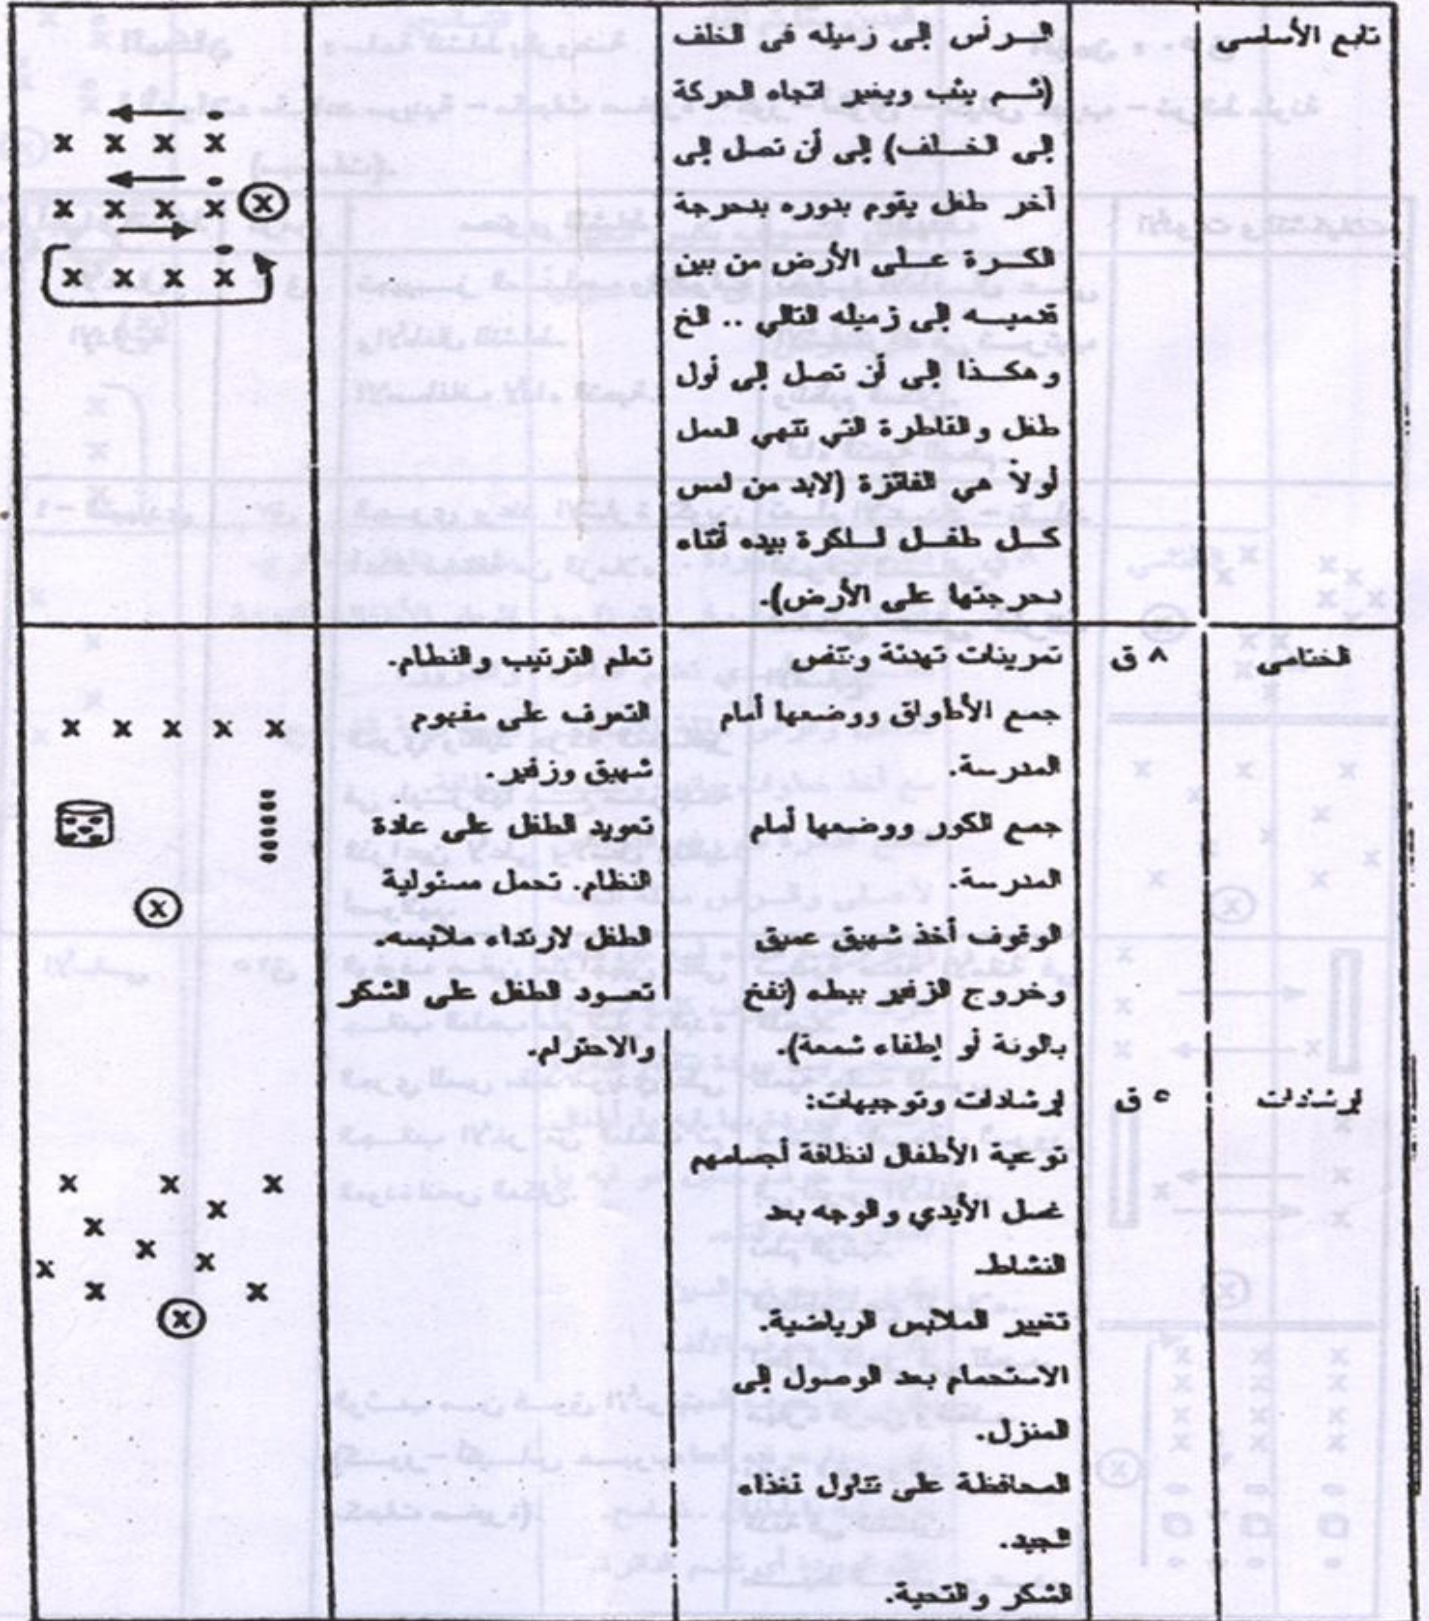 تابع الأساسى
الرأس إلى زميله فى الخلف
(ثم يثب ويغير اتجاه الحركة
إلى الخلف) إلى أن تصل إلى
آخر طفل يقوم بدوره بدحرجة
الكرة على الأرض من بين
قدميه إلى زميله التالي .. الخ
وهكذا إلى أن تصل إلى أول
طفل والقاطرة التي تنهي العمل
أولاً هي الفائزة (لابد من لمس
كل طفل للكرة بيده أثناء
دحرجتها على الأرض).
الختامى
٨ ق
تمرينات تهدئة وتنفس
جمع الأطواق ووضعها أمام
المدرسة.
جمع الكور ووضعها أمام
المدرسة.
الوقوف أخذ شهيق عميق
وخروج الزفير ببطء (نفخ
بالونة أو إطفاء شمعة).
تعلم الترتيب والنظام.
التعرف على مفهوم
شهيق وزفير.
تعويد الطفل على عادة
النظام. تحمل مسئولية
الطفل لارتداء ملابسه.
تعود الطفل على الشكر
والاحترام.
إرشادات
٥ ق
إرشادات وتوجيهات:
توعية الأطفال لنظافة أجسامهم
غسل الأيدي والوجه بعد
النشاط.
تغيير الملابس الرياضية.
الاستحمام بعد الوصول إلى
المنزل.
المحافظة على تناول الغذاء
الجيد.
الشكر والتحية.